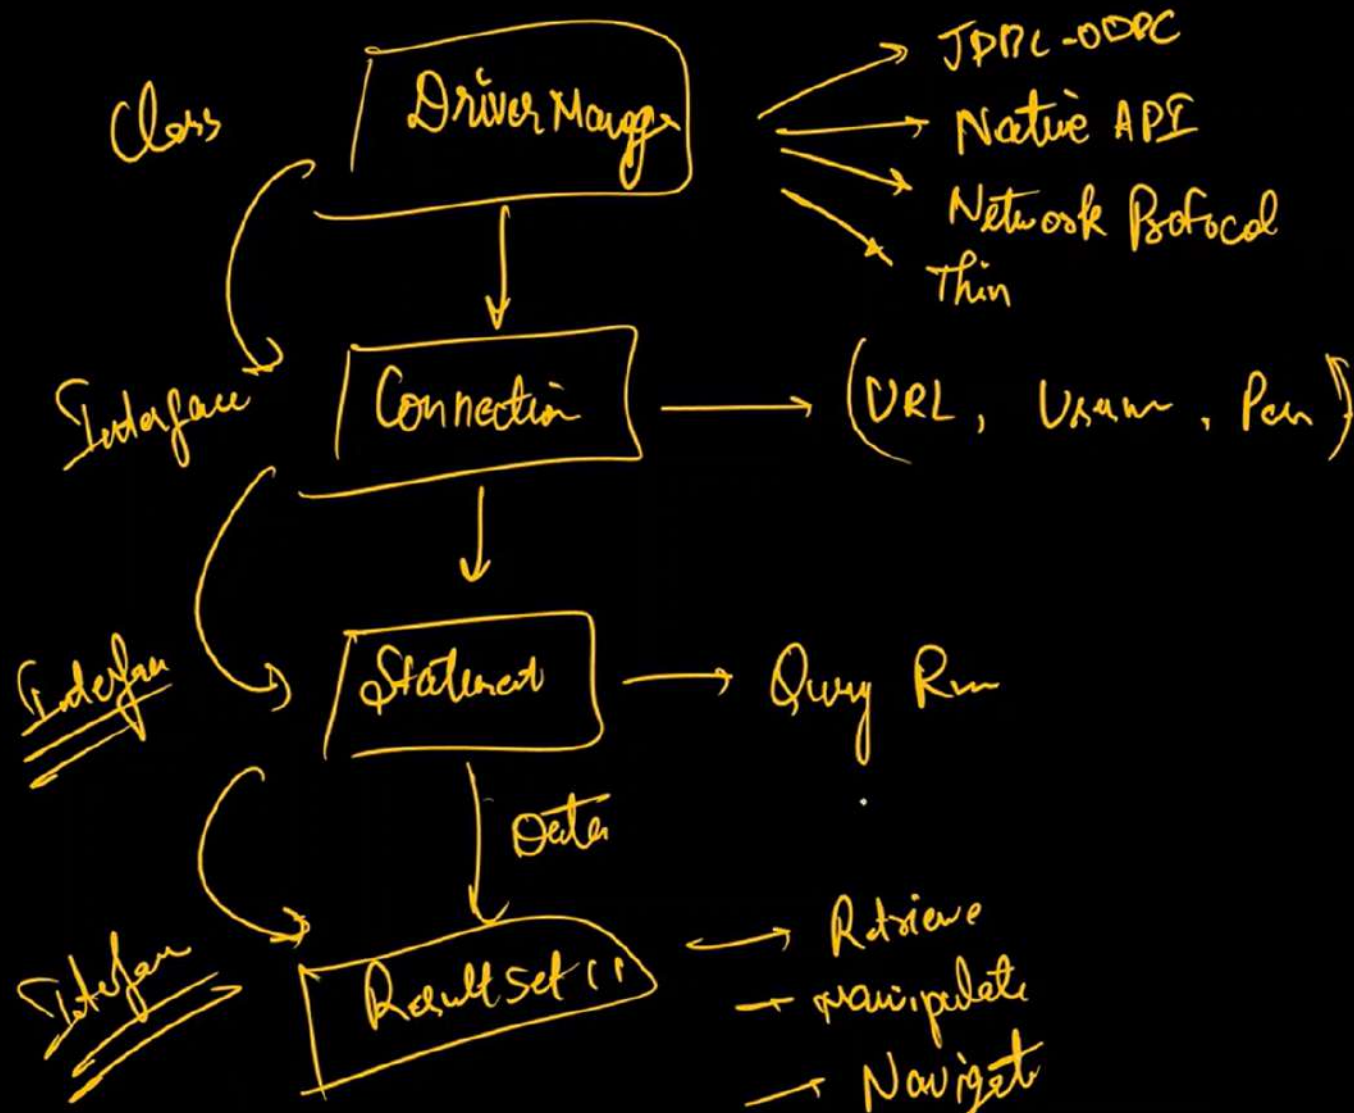 Class
Driver Manager
JDBC-ODBC
Native API
Network Protocol
Thin
Interface
Connection
(URL, Usern, Pass)
Interface
Statement
Query Run
Data
Interface
ResultSet ()
Retrieve
manipulate
Navigate